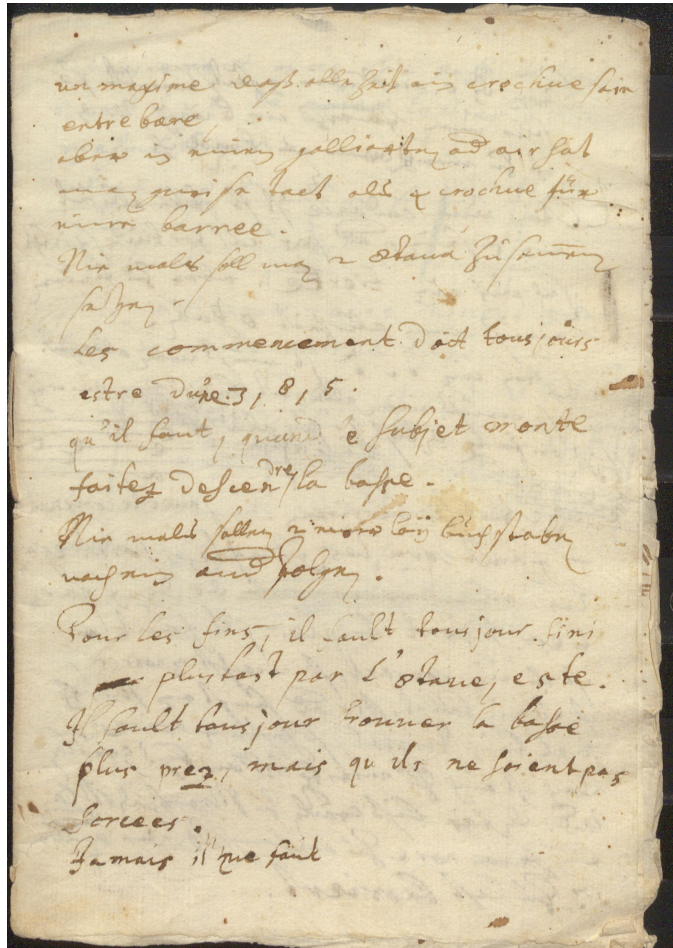 un maxime daß alle Zeit ein crochue sein
entre bare,
aber in einen gallierten od air hat
man gewise tact als 4 crochue für
einen barree.
Nie mals soll man 2 8tava Zusamen
setzen.
les commencement doit tousjours
estre dune 3, 8, 5.
qu'il faut, quand le subjet monte
faitez descendre la basse.
Nie mals sollen 2 einerley buchstaben
nach ein and folgen.
Pour les fins, il fault tousjour fini
plustost par l'8tave, este.
Il fault tousjour trouver la basse
plus prez, mais qu ils ne soient pas
forcees.
Jamais il que faut